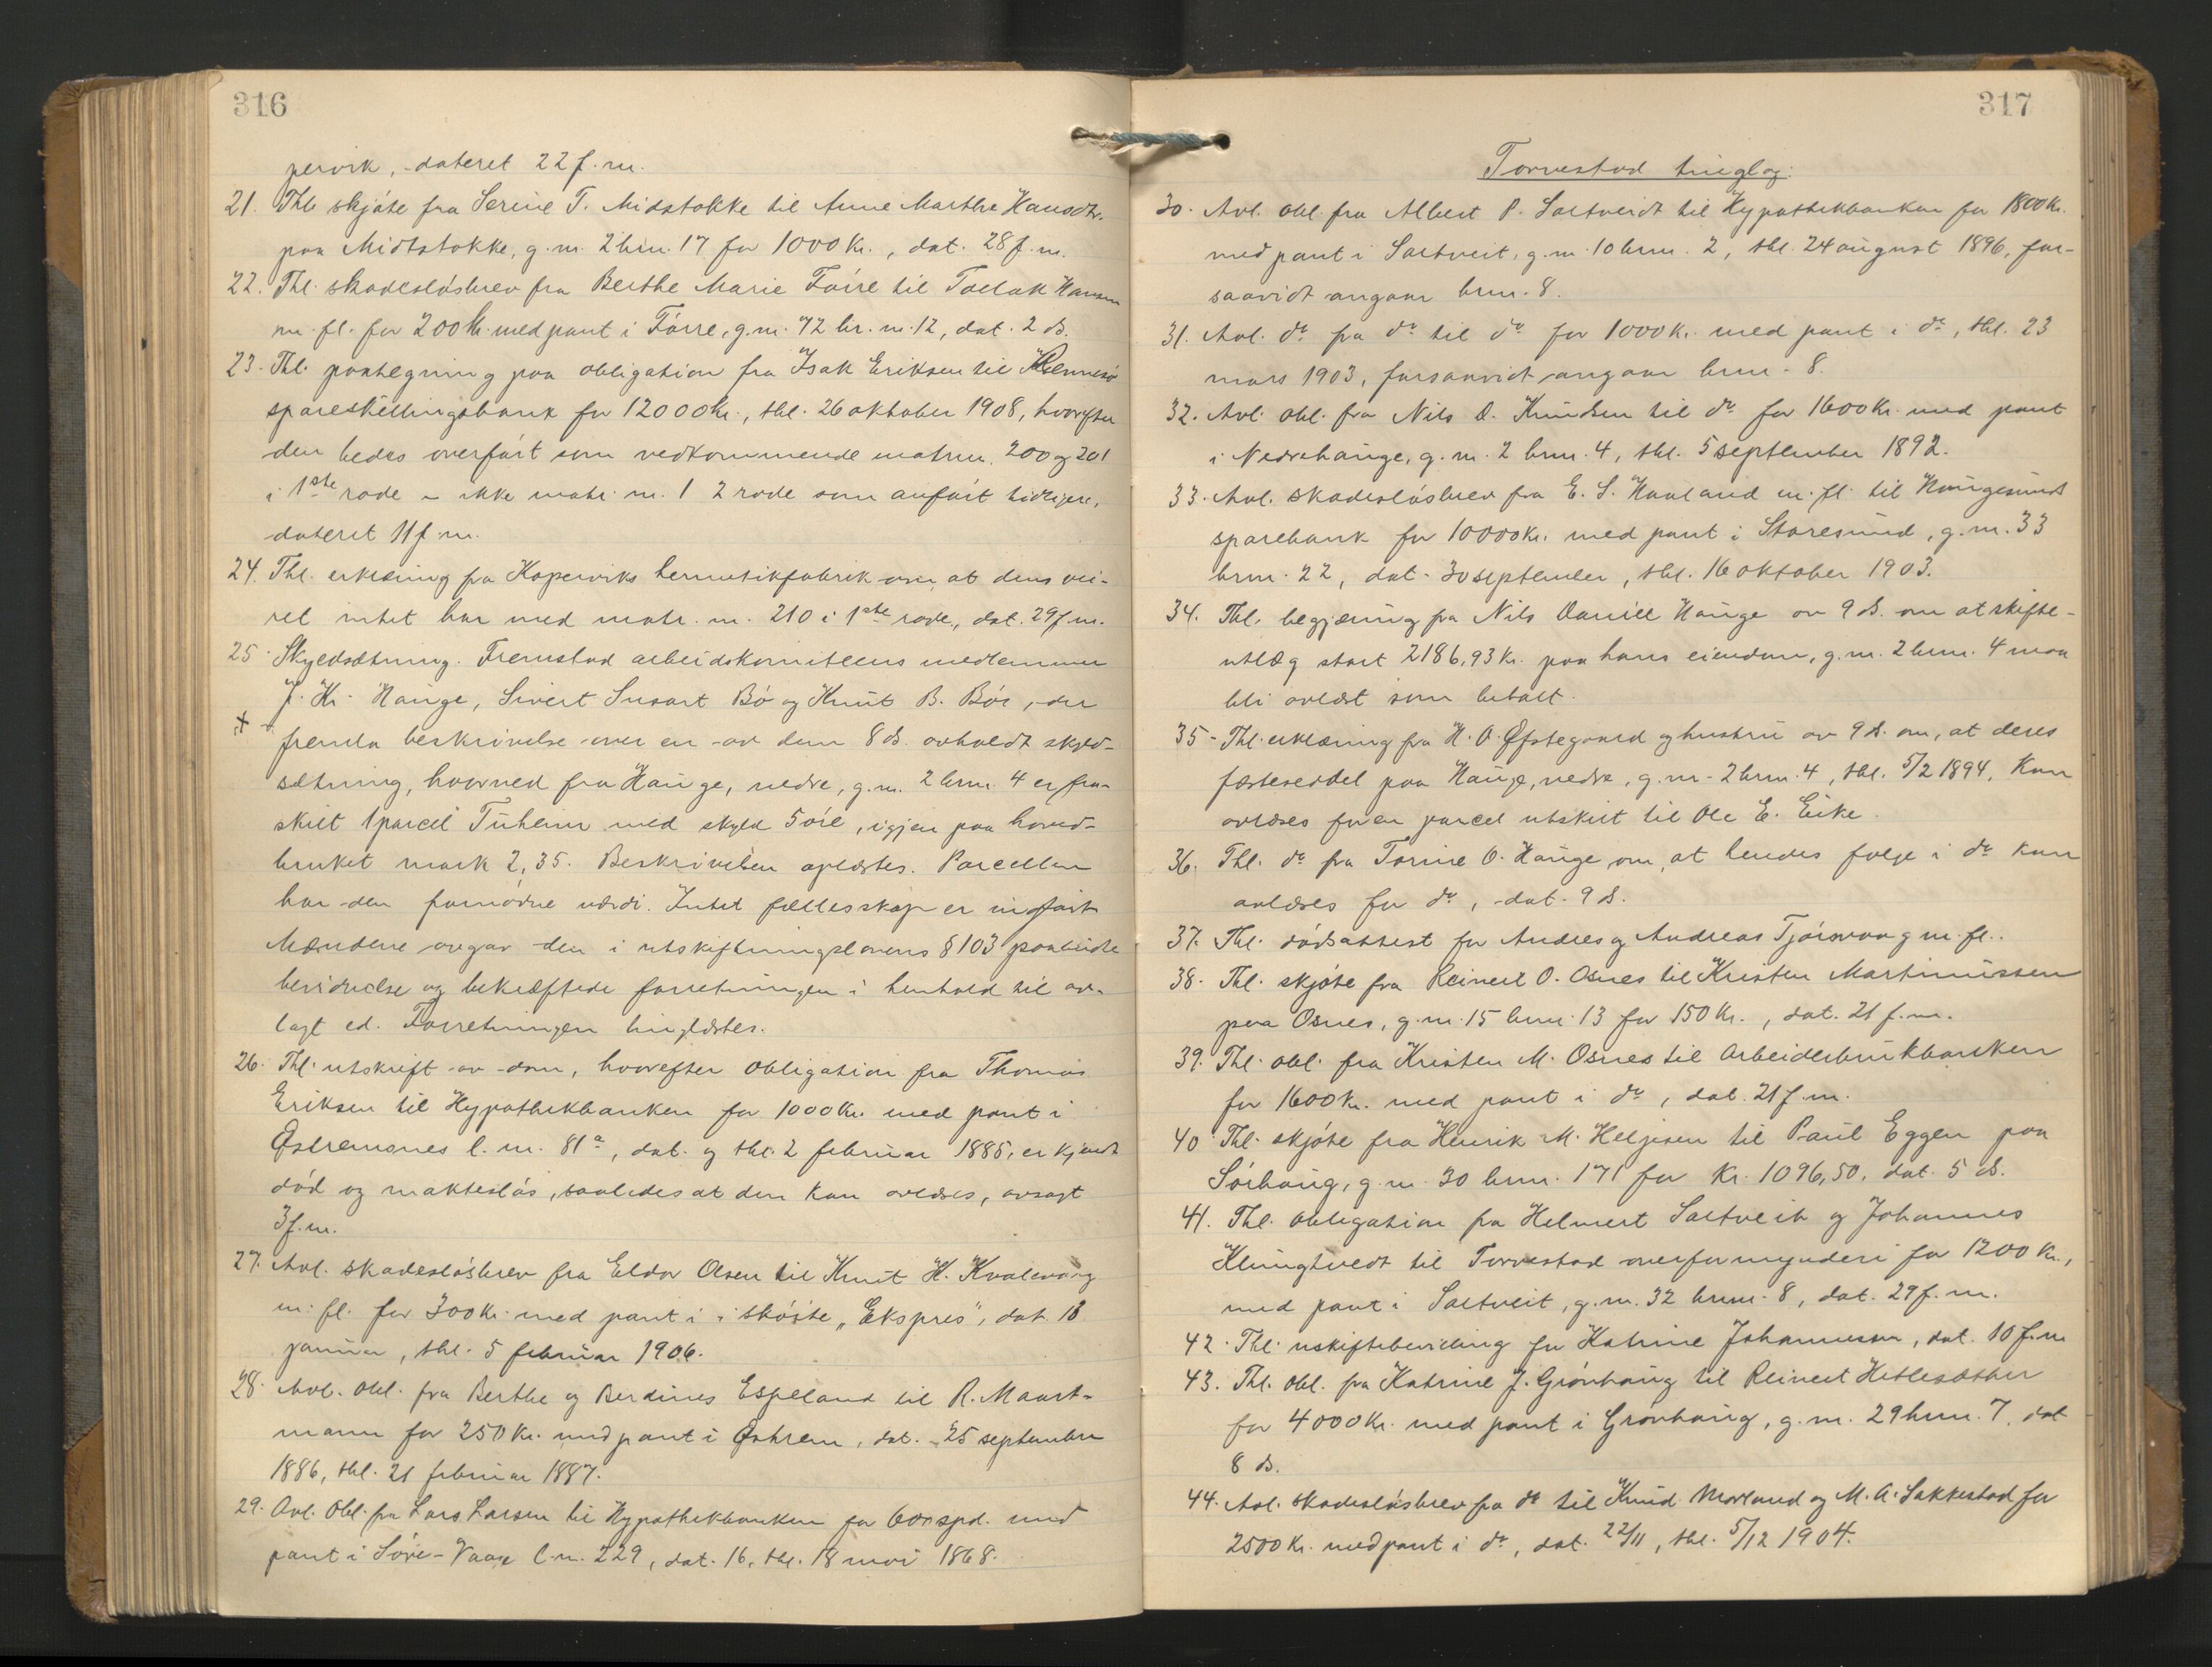 316
pervik, dateret 22 f. m.
21. Thl. skjøte fra Serine T. Midstokke til Anne Marthe Hansdtr.
paa Midtstokke, g. nr. 2 brn. 17 for 1000 Kr., dat. 28 f. m.
22. Thl. skadesløsbrev fra Berthe Marie Førre til Tollak Hansen
m. fl. for 200 kr. med pant i Førre, g. nr. 72 br. nr. 12, dat. 2 ds.
23. Thl. paategning paa obligation fra Isak Eriksen til Rennesø
spareskillingsbank for 12000 kr., thl. 26 oktober 1908, hvorefter
den bedes overført som vedkommende matrn. 200 og 201
i 1ste rode - ikke matr. nr. 1 2 rode som anført tidligere,
dateret 11 f. m.
24. Thl. erklæring fra Koperviks hermetikfabrik om at dens vei-
ret intet har med matr. nr. 210 i 1ste rode, dat. 29 f. m.
25. Skyldsætning. Fremstod arbeidskomiteens medlemmer
J. Kr. Hauge, Sivert Susort Bø og Knut B. Bøe, der
+ fremla beskrivelse over en av dem 8 ds. avholdt skyld-
sætning, hvorved fra Hauge, nedre, g. nr. 2 brn. 4 er fra-
skilt 1 parcel Tuheim med skyld 5 øre, igjen paa hoved-
bruket mark 2,35. Beskrivelsen oplæstes. Parcellen
har den fornødne værdi. Intet fællesskap er indført
Mændene avgav den i utskiftningslovens § 103 paabudte
bevidnelse og bekræftede forretningen i henhold til av-
lagt ed. Forretningen tinglæstes.
26. Thl. utskrift av dom, hvorefter obligation fra Thomas
Eriksen til Hypothekbanken for 1000 Kr. med pant i
Østremsnes l. nr. 81a, dat. og thl. 2 februar 1885, er kjendt
død og magtesløs, saaledes at den kan avlæses, avsagt
3 f. m.
27. Avl. skadesløsbrev fra Eldor Olsen til Knut H. Kvalevaag
m. fl. for 300 Kr. med pant i skøite "Ekspres", dat. 18
januar, thl. 5 februar 1906.
28. Avl. obl. fra Berthe og Berdines Espeland til R. Maart-
mann for 250 Kr. med pant i Østrem, dat. 25 september
1886, thl. 21 februar 1887.
29. Avl. Obl. fra Lars Larsen til Hypothekbanken for 600 spd. med
pant i Søre-Vaage l. nr. 229, dat. 16, thl. 18 mai 1868.
317
Torvestad tinglag:
30. Avl. obl. fra Albert P. Saltveidt til Hypothekbanken for 1800 Kr.
med pant i Saltveit, g. nr. 10 brn. 2, thl. 24 august 1896, for-
saavidt angaar brn. 8.
31. Avl. do fra do til do for 1000 Kr. med pant i do, thl. 23
mars 1903, forsaavidt angaar brn. 8.
32. Avl. obl. fra Nils D. Knudsen til do for 1600 Kr. med pant
i Nedrehauge, g. nr. 2 brn. 4, thl. 5 september 1892.
33. Avl. skadesløsbrev fra E. S. Havland m. fl. til Haugesunds
sparebank for 10000 Kr. med pant i Storesund, g. nr. 33
brn. 22, dat. 30 september, thl. 16 oktober 1903.
34. Thl. begjæring fra Nils Daniel Hauge av 9 ds. om at skifte-
utlæg stort 2186,93 Kr. paa hans eiendom, g. nr. 2 brn. 4 maa
bli avlæst som betalt.
35. Thl. erklæring fra H. O. Østegaard og hustru av 9 ds. om, at deres
fæsteseddel paa Hauge, nedre, g. nr. 2 brn. 4, thl. 5/2 1894, kan
avlæses for en parcel utskilt til Ole E. Eike.
36. Thl. do fra Torine O. Hauge om, at hendes folge i do kan
avlæses for do, dat. 9 ds.
37. Thl. dødsattest for Andres og Andreas Tjøsvaag m. fl..
38. Thl. skjøte fra Reinert O. Osnes til Kristen Martinussen
paa Osnes, g. nr. 15 brn. 13 for 150 Kr., dat. 21 f. m.
39. Thl. obl. fra Kristen M. Osnes til Arbeiderbrukbanken
for 1600 Kr. med pant i do, dat. 21 f. m.
40. Thl. skjøte fra Henrik M. Helgesen til Paul Eggen paa
Sørhaug, g. nr. 30 brn. 171 for Kr. 1096,50, dat. 5 ds.
41. Thl. obligation fra Helmert Saltveit og Johannes
Klungtvedt til Torvestad overformynderi for 1200 Kr.,
med pant i Saltveit, g. nr. 32 brn. 8, dat. 29 f. m.
42. Thl. uskiftebevilling for Katrine Johannesen, dat. 10 f. m.
43. Thl. obl. fra Katrine J. Grønhaug til Reinert Hetlesæther
for 4000 Kr. med pant i Grønhaug, g. nr. 29 brn. 7, dat
8 ds.
44. Avl. skadesløsbrev fra do til Knud Morland og M. A. Sakkestad for
2500 Kr. med pant i do, dat. 22/11, thl. 5/12 1904.